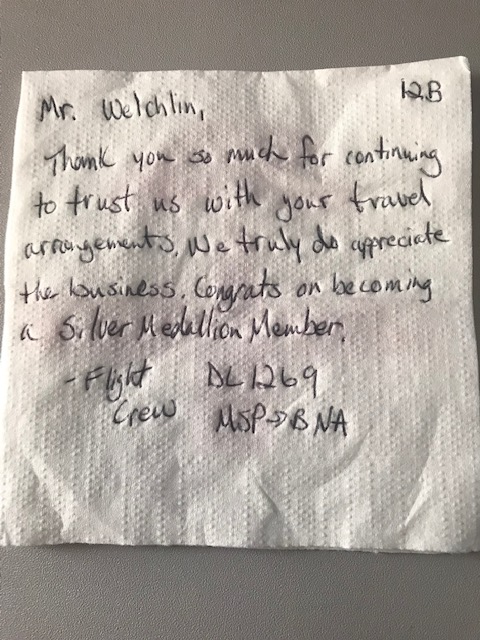 12B
Mr. Welchlin,
Thank you so much for continuing
to trust us with your travel
arrangements. We truly do appreciate
the business. Congrats on becoming
a Silver Medallion Member.
- Flight DL1269
Crew MSP→BNA